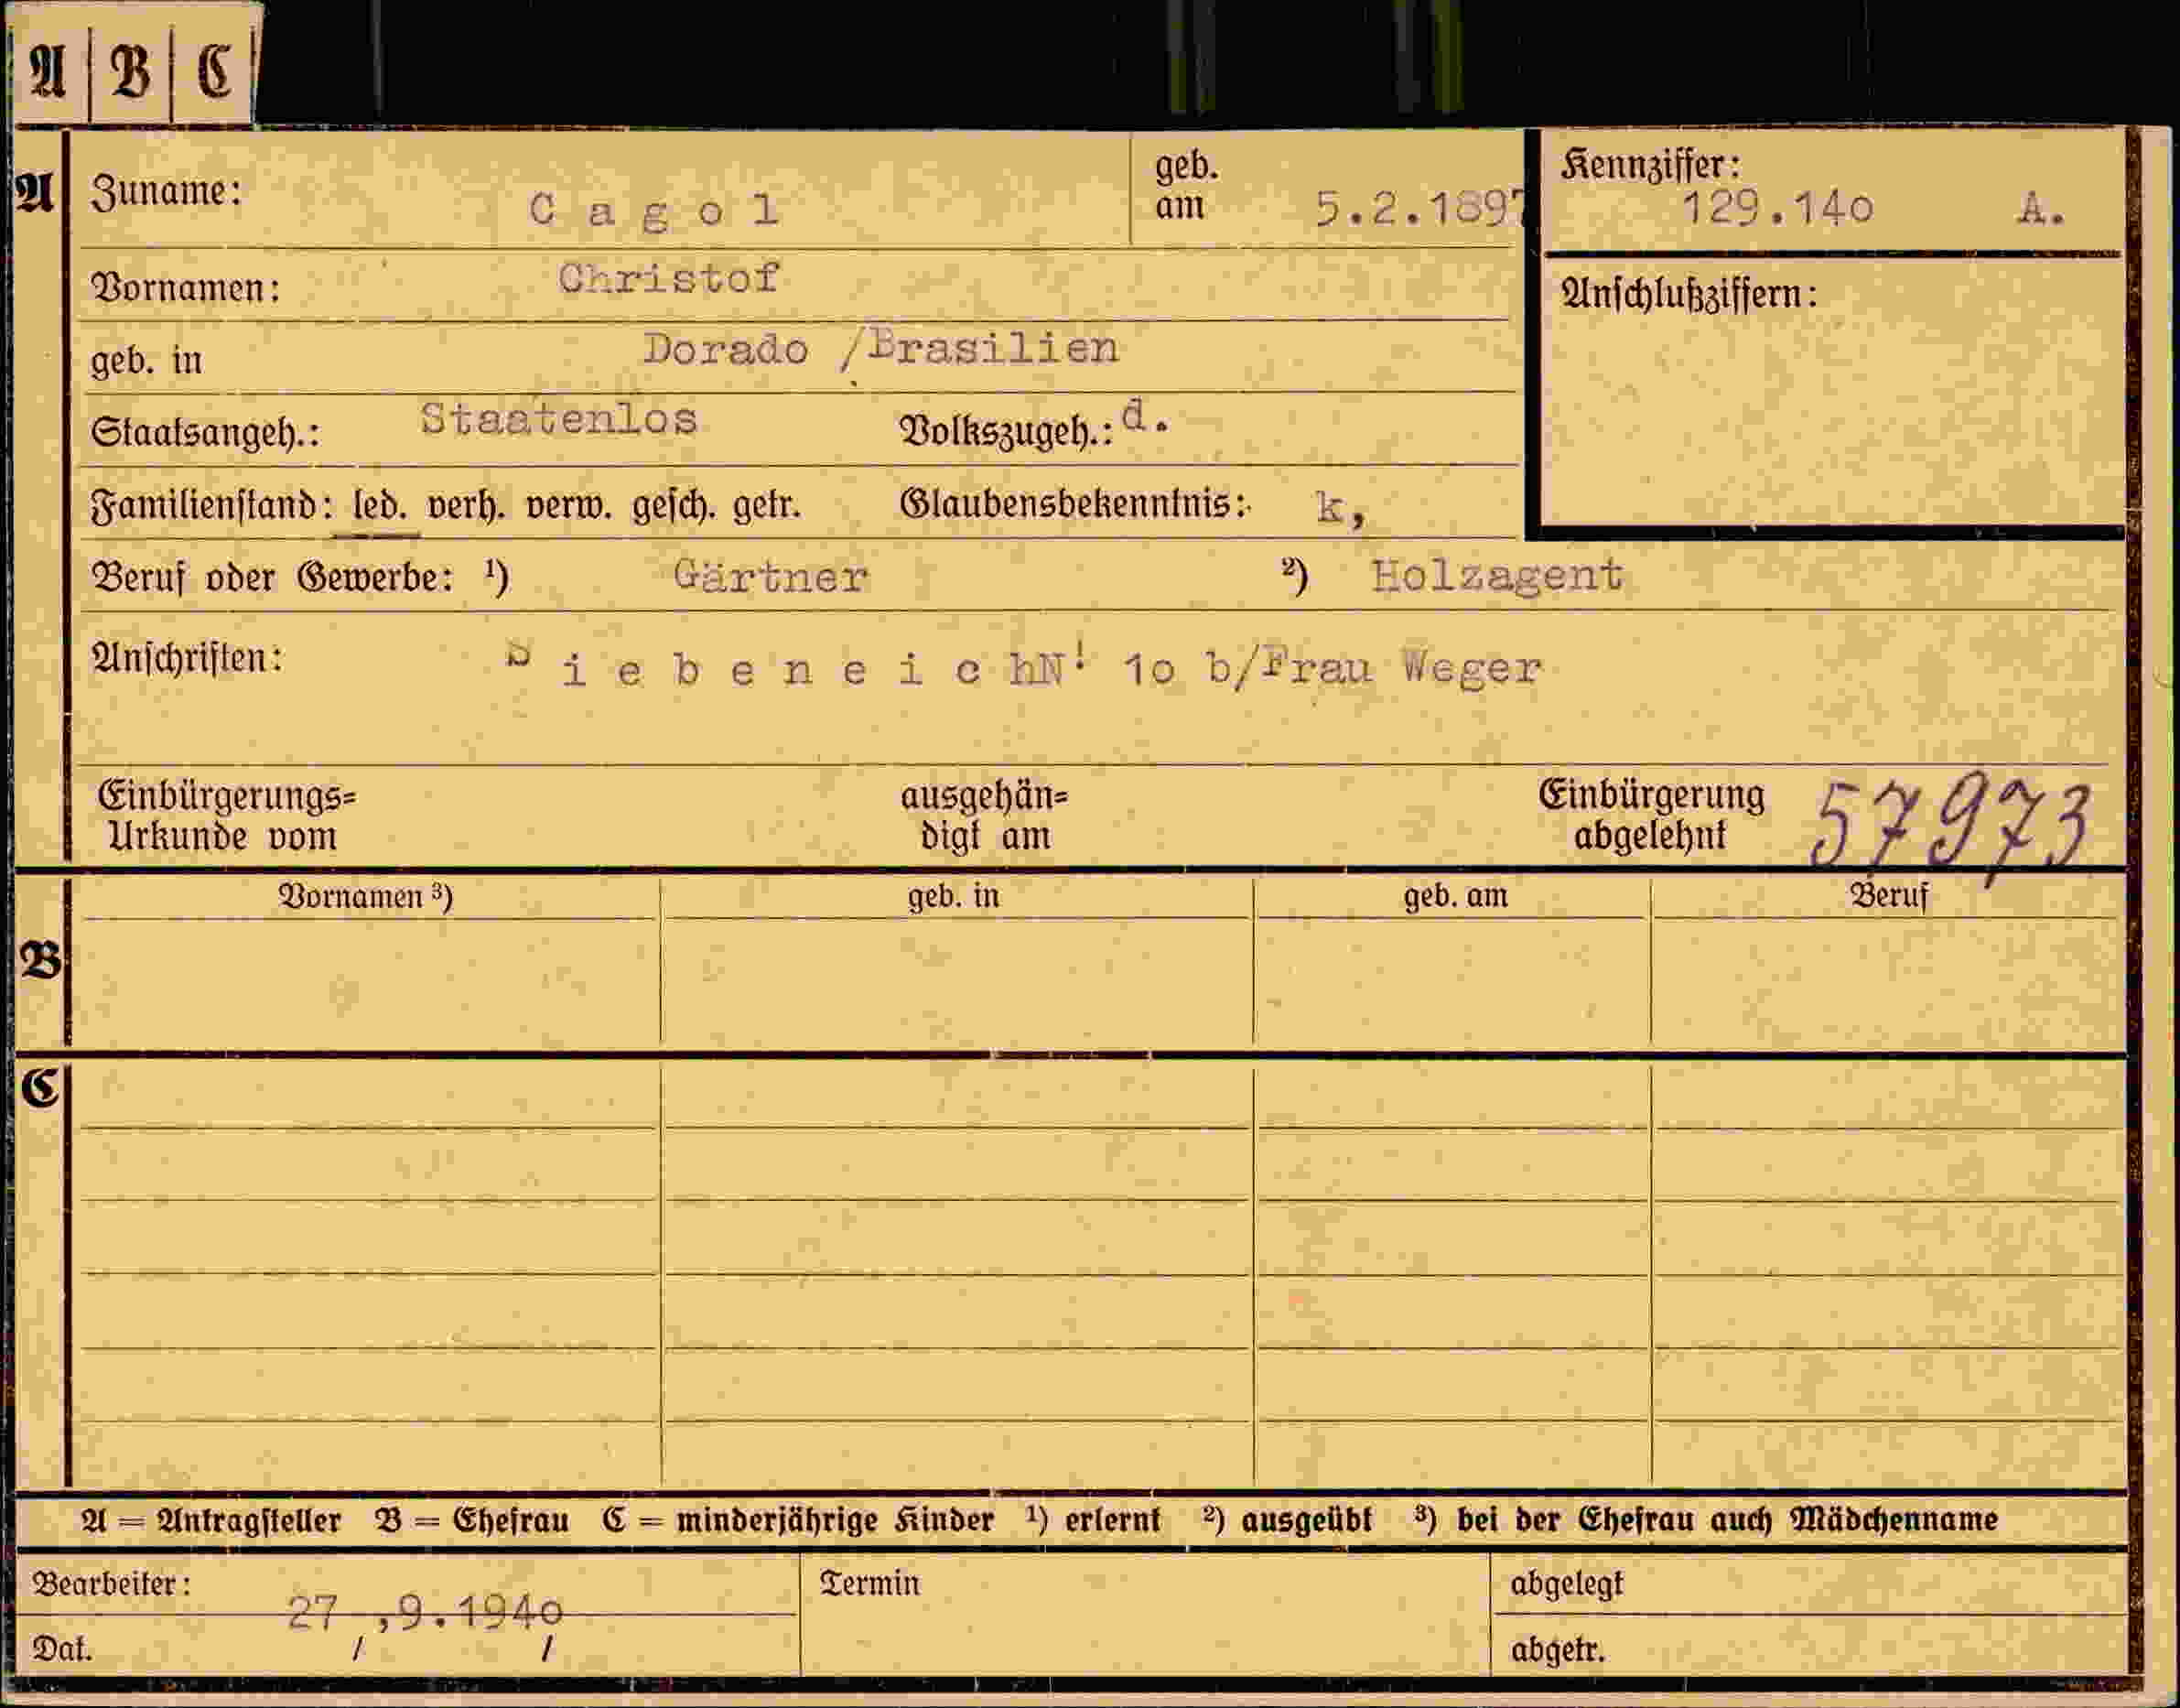 A B C
A Zuname: C a g o l geb. am 5.2.1897 Kennziffer: 129.14o A.
Vornamen: Christof Anschlußziffern:
geb. in Dorado /Brasilien
Staatsangeh.: Staatenlos Volkszugeh.: d.
Familienstand: led. verh. verw. gesch. getr. Glaubensbekenntnis: k,
Beruf oder Gewerbe: ¹) Gärtner ²) Holzagent
Anschriften: S i e b e n e i c hN! 1o b/Frau Weger
Einbürgerungs= ausgehän= Einbürgerung 57973
Urkunde vom digt am abgelehnt
Vornamen ³) geb. in geb. am Beruf
B
C
A = Antragsteller B = Ehefrau C = minderjährige Kinder ¹) erlernt ²) ausgeübt ³) bei der Ehefrau auch Mädchenname
Bearbeiter: Termin abgelegt
27 ,9.194o
Dat. / / abgetr.